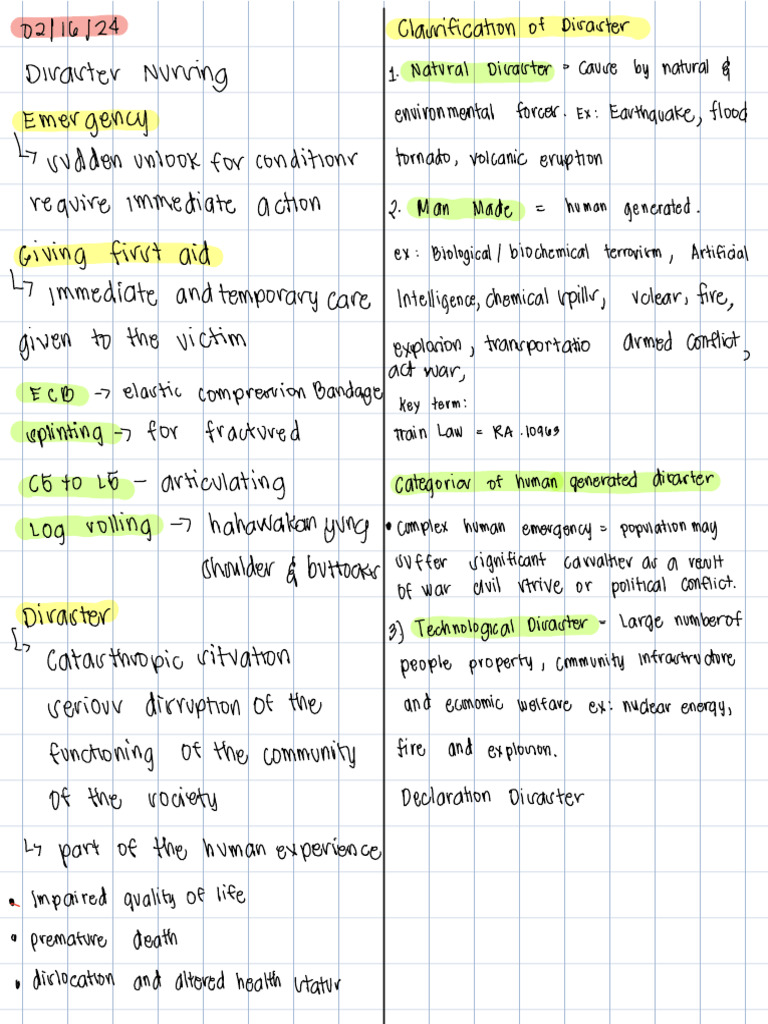 02/16/24
Disaster Nursing
Emergency
↳ sudden unlook for conditions
require immediate action
Giving first aid
↳ immediate and temporary care
given to the victim
ECB → elastic compression Bandage
splinting → for fractured
C5 to L5 - articulating
Log rolling → hahawakan yung
shoulder & buttocks
Disaster
↳ Catasthropic situation
serious disruption of the
functioning of the community
of the society
↳ part of the human experience
• Impaired quality of life
• premature death
• dislocation and altered health status
Classification of Disaster
1. Natural Disaster - Cause by natural &
environmental forces. Ex: Earthquake, flood
tornado, volcanic eruption
2. Man Made = human generated.
ex: Biological / biochemical terrorism, Artificial
Intelligence, chemical spills, nclear, fire,
explosion, transportatio armed conflict,
act war,
Key term:
Train Law = RA. 10963
Categories of human generated disaster
• Complex human emergency = population may
suffer significant casualties as a result
of war civil strive or political conflict.
3) Technological Disaster - Large number of
people property, cmmunity infrastructure
and ecnomic welfare ex: nuclear energy,
fire and explosion.
Declaration Disaster